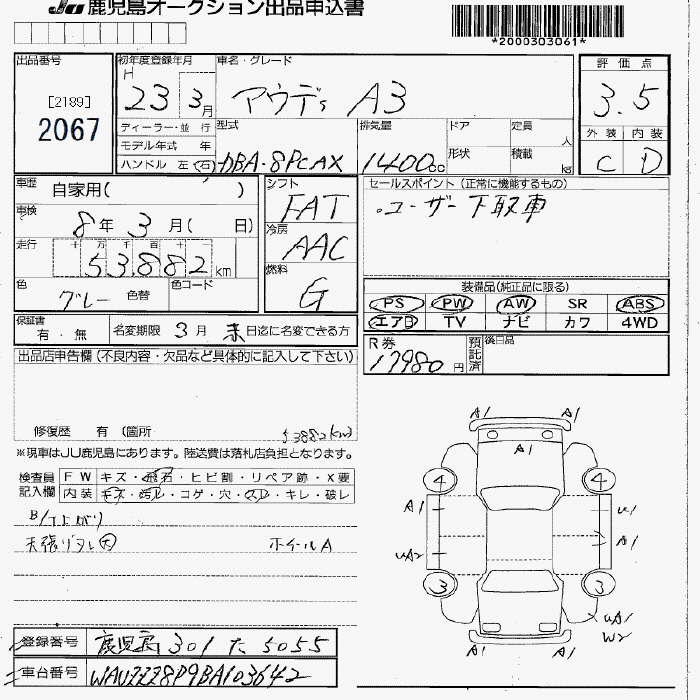 JU 鹿児島オークション出品申込書
*2000303061*
出品番号
[2189]
2067
初年度登録年月
H 23 3月
車名・グレード
アウディ A3
評価点
3.5
外装 内装
C D
ディーラー・並行
モデル年式 年
ハンドル 左・右
型式
DBA-8PCAX
排気量
1400cc
ドア
形状
定員 人
積載 kg
車歴 自家用( )
車検 8年 3月( 日)
走行 十 万 千 百 十 一
53,882 km
色 グレー 色替
色コード
シフト
FAT
冷房
AAC
燃料
G
セールスポイント(正常に機能するもの)
。ユーザー下取車
装備品(純正品に限る)
PS PW AW SR ABS
エアB TV ナビ カワ 4WD
保証書 有・無
名変期限 3月 末日迄に名変できる方
R券 17980円
預託済
後日品
出品店申告欄(不良内容・欠品など具体的に記入して下さい)
修復歴 有 (箇所
53882km)
※現車はJU鹿児島にあります。陸送費は落札店負担となります。
検査員記入欄
FW キズ・飛石・ヒビ割・リペア跡・X要
内装 キズ・汚レ・コゲ・穴・スレ・キレ・破レ
B/下上がり
天張りタレ大 ホイールA
A1 A1
A1
4 4
A1 U1
UA2 A1
3 3
UA1
W2
A1 A1
登録番号 鹿児島 301 た 5055
車台番号 WAUZZZ8P9BA103642